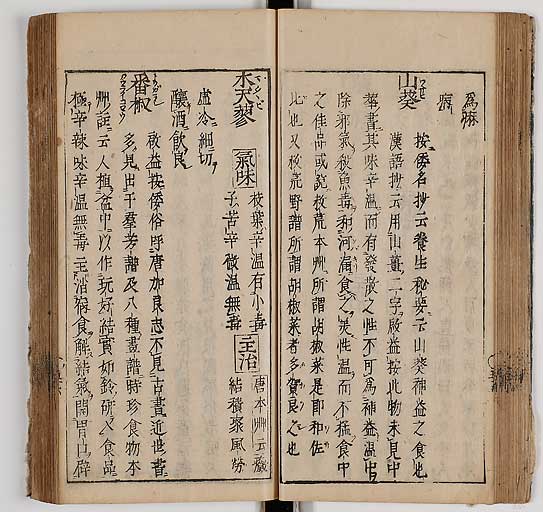 為麻
痢
山葵
按倭名抄云養生秘要云山葵神益之食也
漢語抄云用山薑二字啟益按此物未見中
華書其味辛温而有發散之性不可為神益温中
除邪氣殺魚毒和河食之性温而不猛食中
之佳品或說救荒本艸所謂胡椒菜是即和佐
比也又救荒野譜所謂胡椒菜者多賀良之也
木天蓼
氣味
枝葉辛温有小毒
子苦辛微温無毒
主治
唐本艸云
結積聚風勞
虚冷細切
釀酒飲良
番椒
啟益按倭俗呼唐加良志不見古書近世書
多見出于羣芳譜及八種畫譜時珍食物本
艸話云人植盆中以作玩好結實如鈴研入食品
極辛辣味辛温無毒主消食解結氣開胃口辟